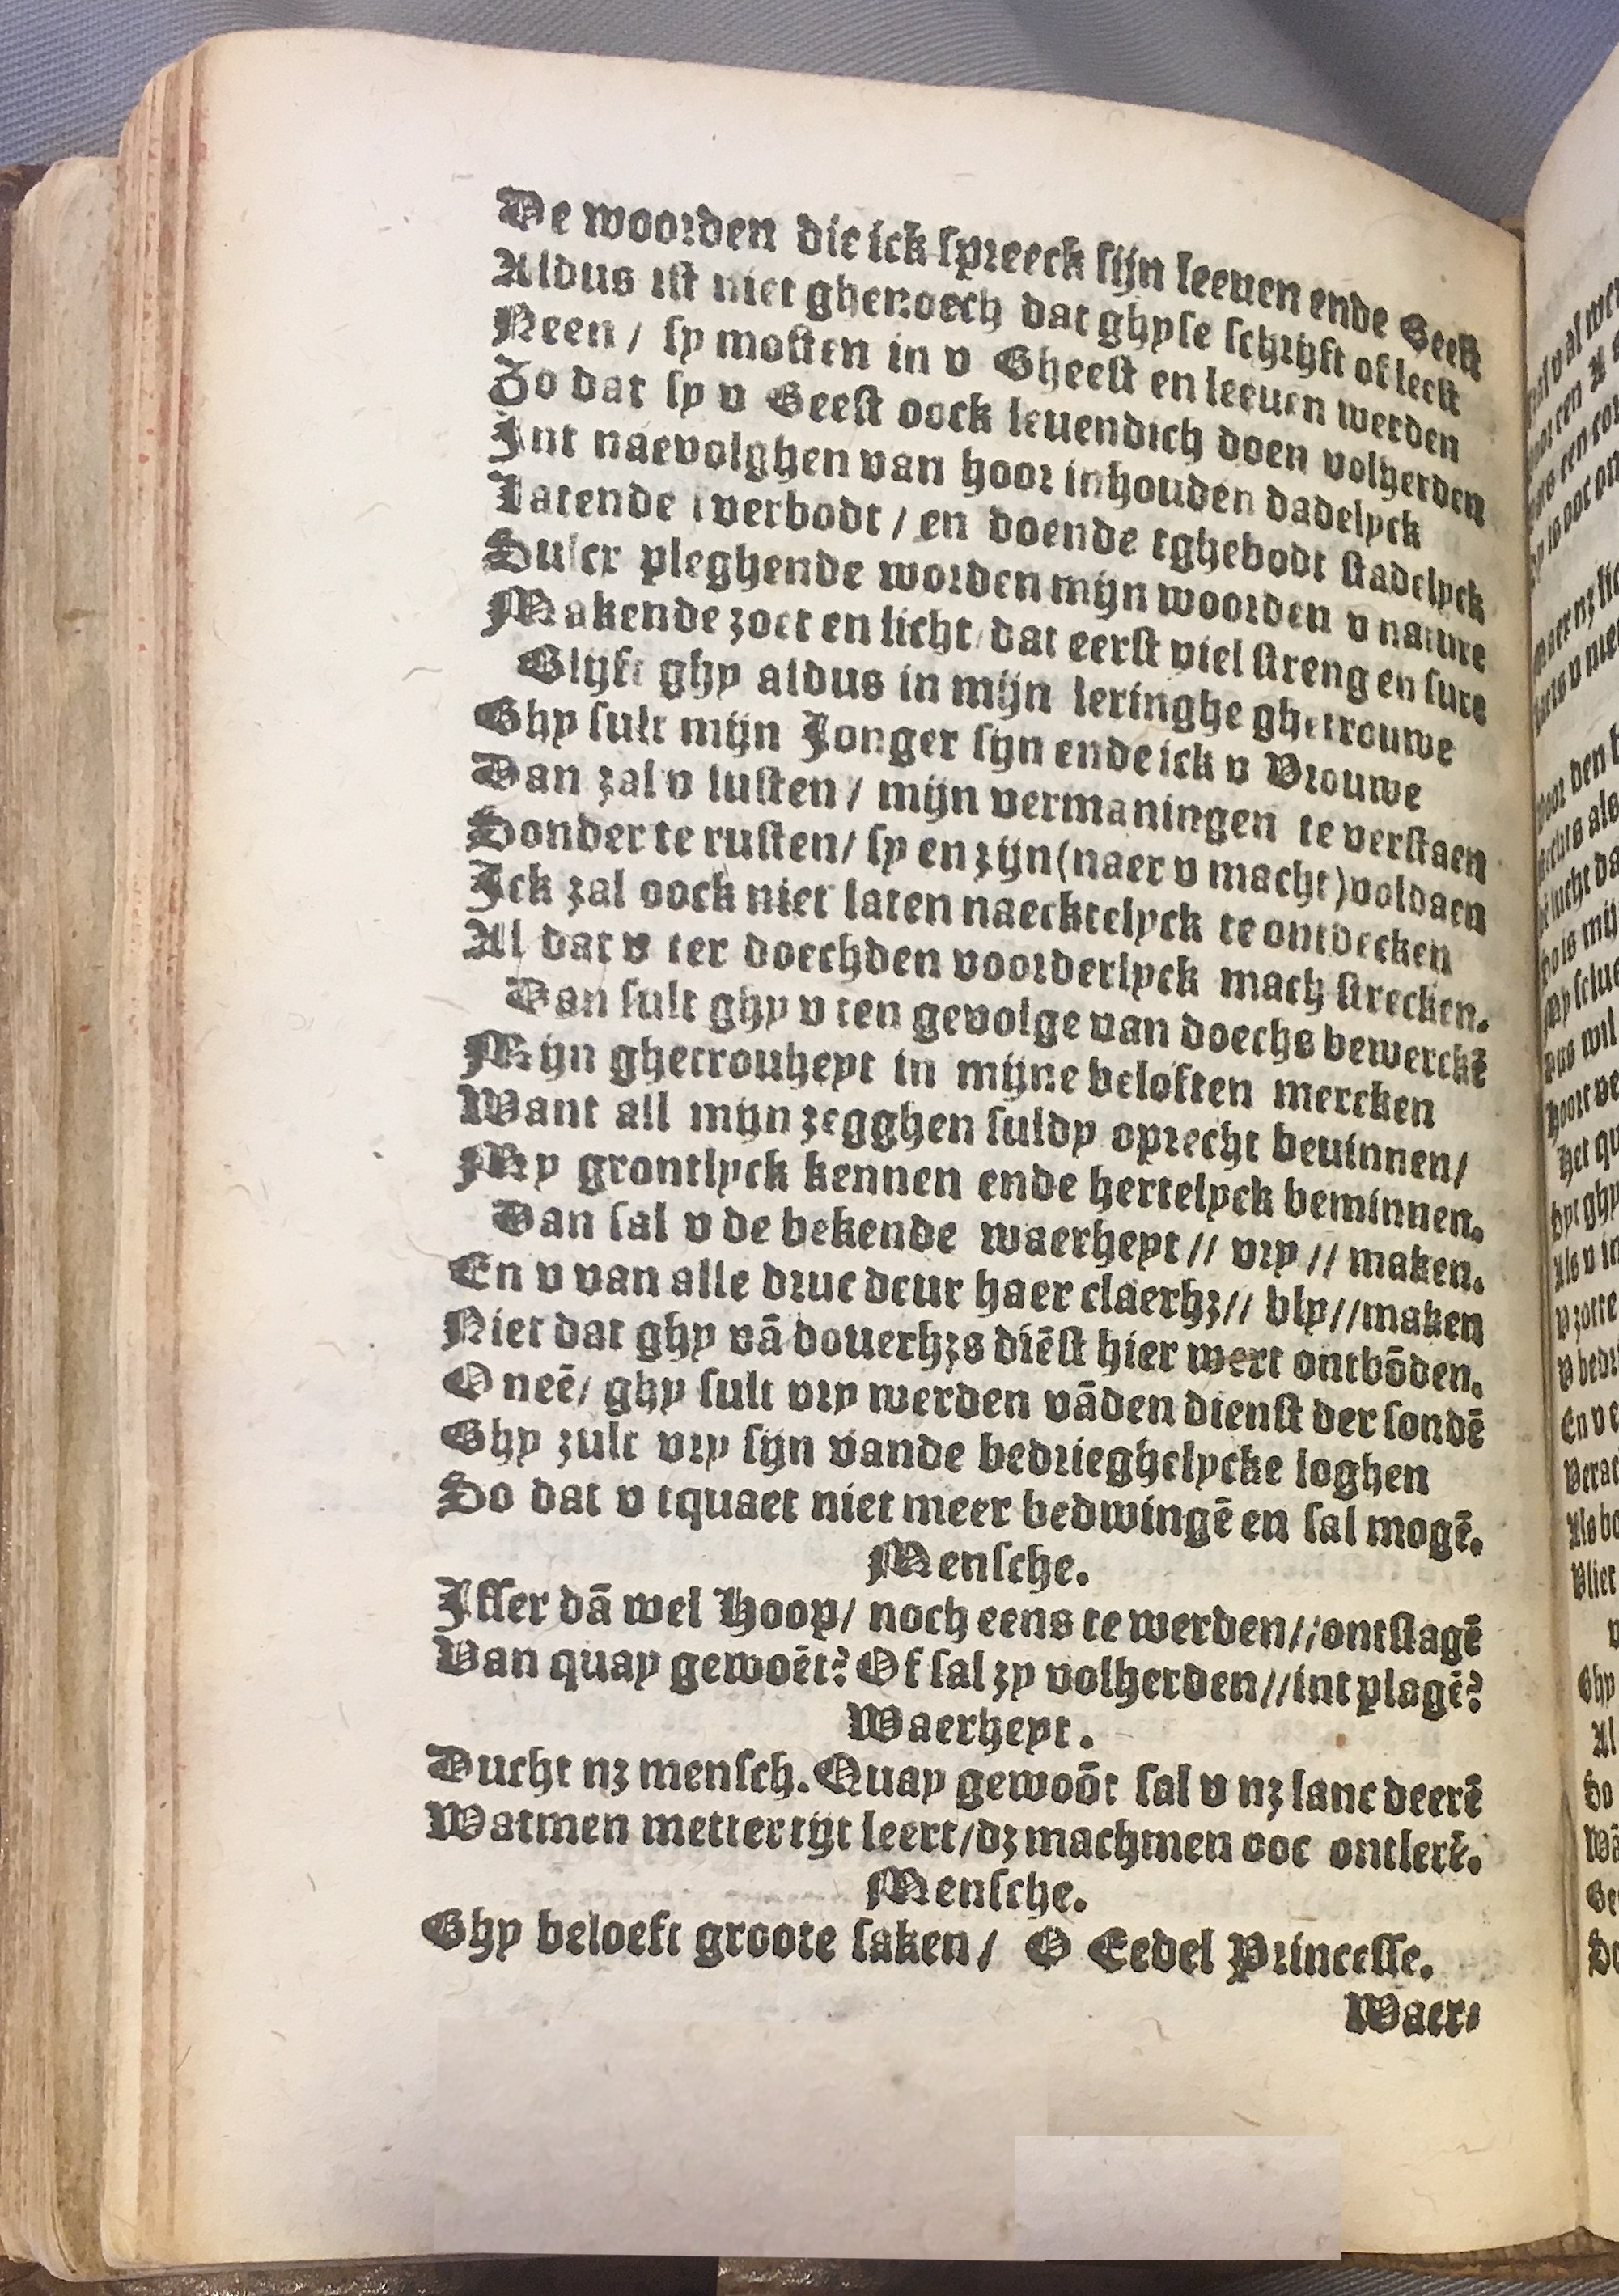 De woorden die ick spreeck sijn leeuen ende Geest
Aldus ist niet ghenoech dat ghyse schrijft of leest
Neen / sy mosten in v Gheest en leeuen werden
Zo dat sy v Geest oock leuendich doen volherden
Int naevolghen van hoor inhouden dadelyck
Latende tverbodt / en doende tghebodt stadelyck
Sulcx pleghende worden mijn woorden v nature
Makende zoet en licht / dat eerst viel streng en sure
Glijft ghy aldus in mijn leringhe ghetrouwe
Ghy sult mijn Jonger sijn ende ick v Vrouwe
Dan zal v lusten / mijn vermaningen te verstaen
Sonder te rusten / sy en zijn (naer v macht) voldaen
Ick zal oock niet laten naecktelyck te ontdecken
Al dat v ter doechden voorderlyck mach strecken.
Dan sult ghy v ten gevolge van doechs bewerckē
Mijn ghetrouheyt in mijne beloften mercken
Want all mijn zegghen suldy oprecht beuinnen /
My grontlyck kennen ende hertelyck beminnen.
Dan sal v de bekende waerheyt // vry // maken.
En v van alle druc deur haer claerhz // bly // maken
Niet dat ghy vā douerhzs diēst hier wert ontbōden.
O neē / ghy sult vry werden vāden dienst der sondē
Ghy zult vry sijn vande bedrieghelycke loghen
So dat v tquaet niet meer bedwingē en sal mogē.
Mensche.
Isser dā wel Hoop / noch eens te werden // ontslagē
Van quay gewoēt? Of sal zy volherden // int plagē?
Waerheyt.
Ducht nz mensch. Quay gewoōt sal v nz lanc deerē
Watmen mettertijt leert / dz machmen ooc ontlerē.
Mensche.
Ghy beloeft groote saken / O Eedel Princesse.
Waer-